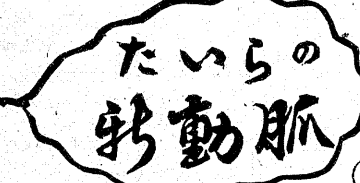 たいらの
新動脈